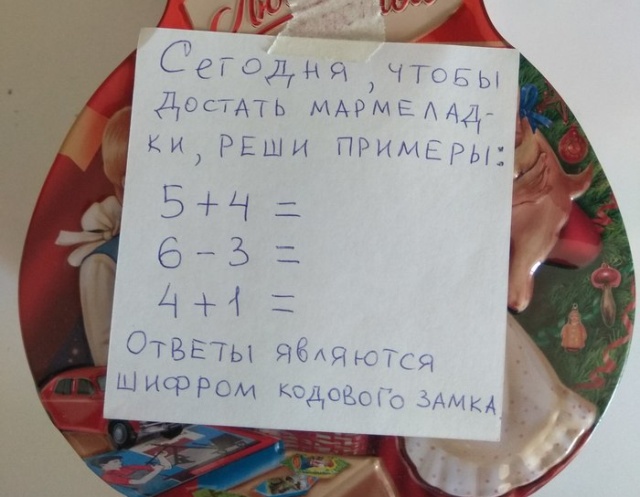 Сегодня, чтобы
достать мармелад-
ки, реши примеры:
5+4 =
6-3 =
4+1 =
Ответы являются
шифром кодового замка